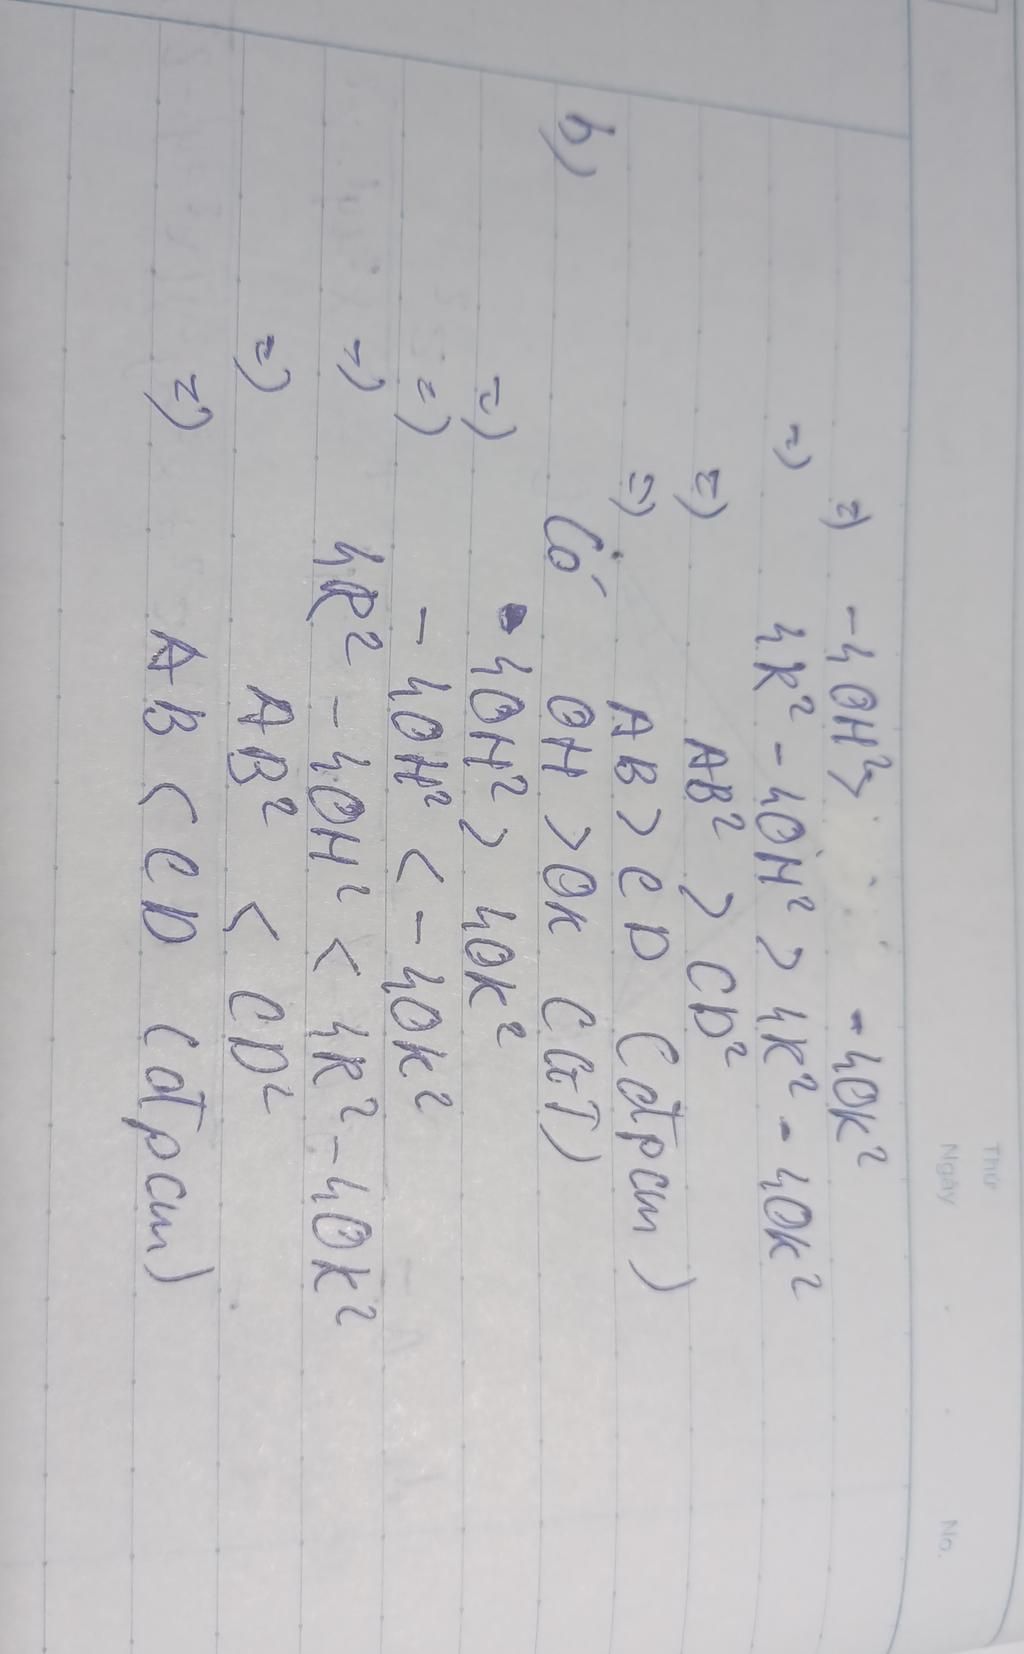 Thứ
Ngày No.
=) -4OH²> -4OK²
=) 4R² - 4OH² > 4R² - 4OK²
=) AB² > CD²
=) AB > CD (đpcm)
b) Có OH > OK (GT)
=) 4OH² > 4OK²
=) - 4OH² < - 4OK²
=) 4R² - 4OH² < 4R² - 4OK²
=) AB² < CD²
=) AB < CD (đpcm)